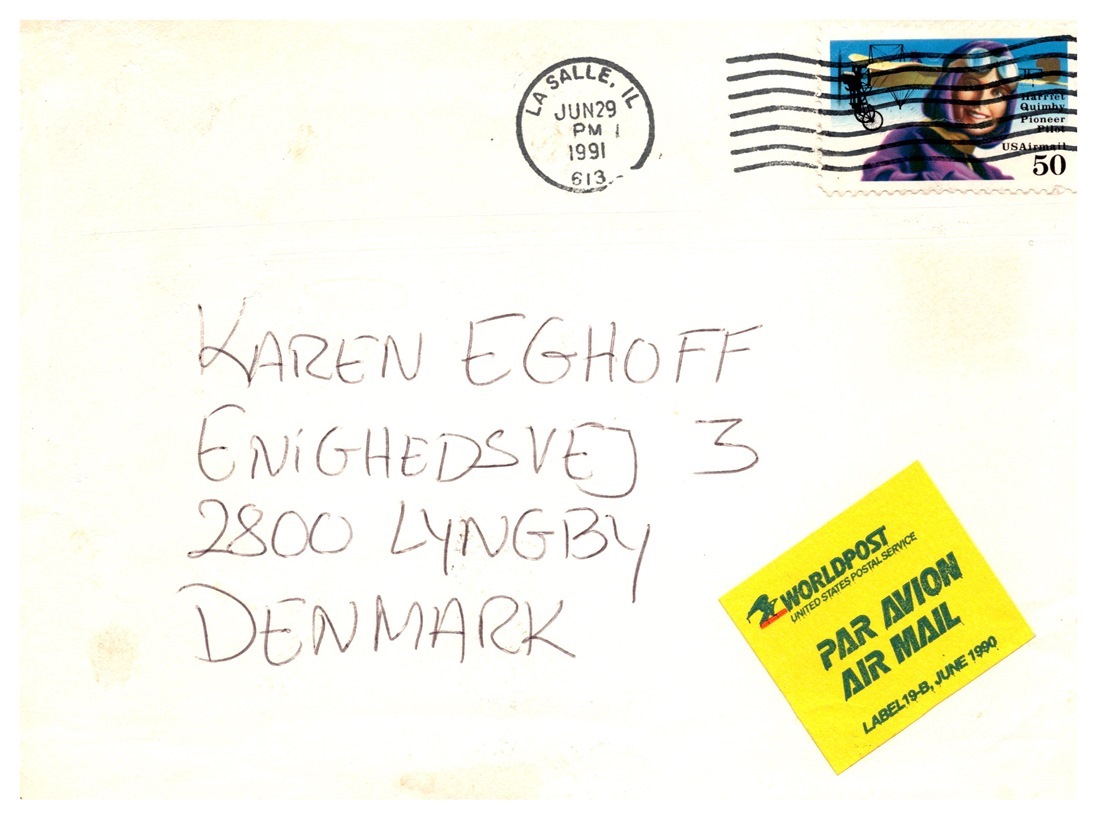 LA SALLE, IL
JUN 29
PM 1
1991
613
Harriet
Quimby
Pioneer
Pilot
USAirmail
50
KAREN EGHOFF
ENiGHEDSVEJ 3
2800 LYNGBY
DENMARK
WORLDPOST
UNITED STATES POSTAL SERVICE
PAR AVION
AIR MAIL
LABEL 19-B, JUNE 1990